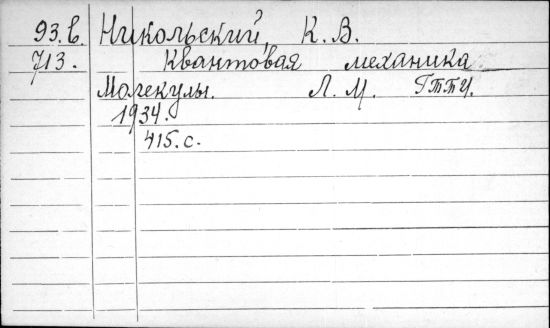 93.в. Никольский, К. В.
713. Квантовая механика
Молекулы. Л. М. ГТТИ.
1934.
415.с.